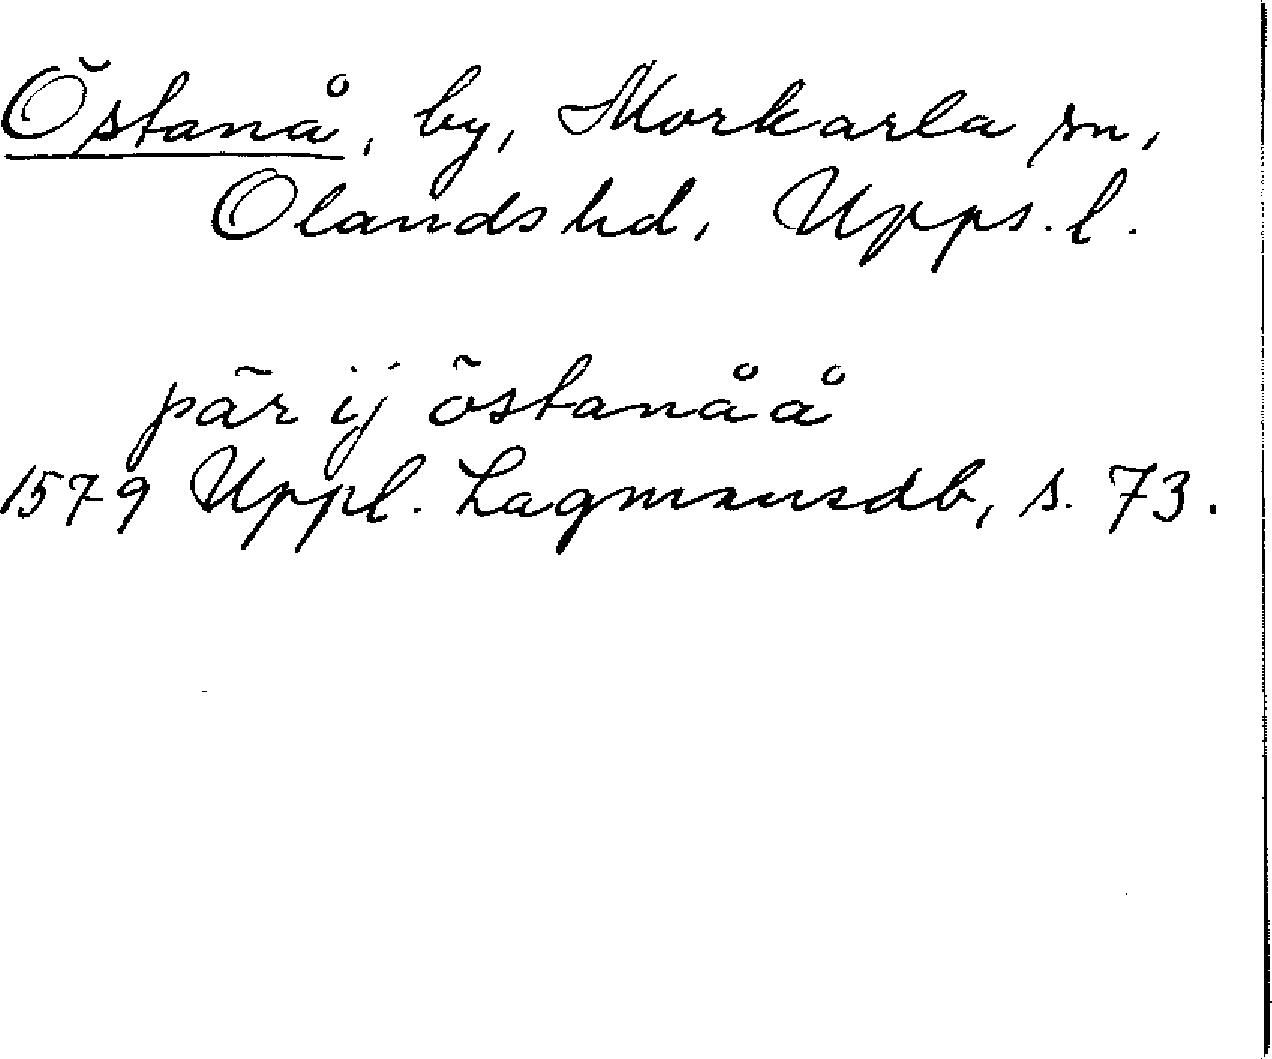 Östanå, by, Morkarla sn,
Olands hd, Upps. l.
pär ij östanåå
1579 Uppl. Lagmansdb, s. 73.